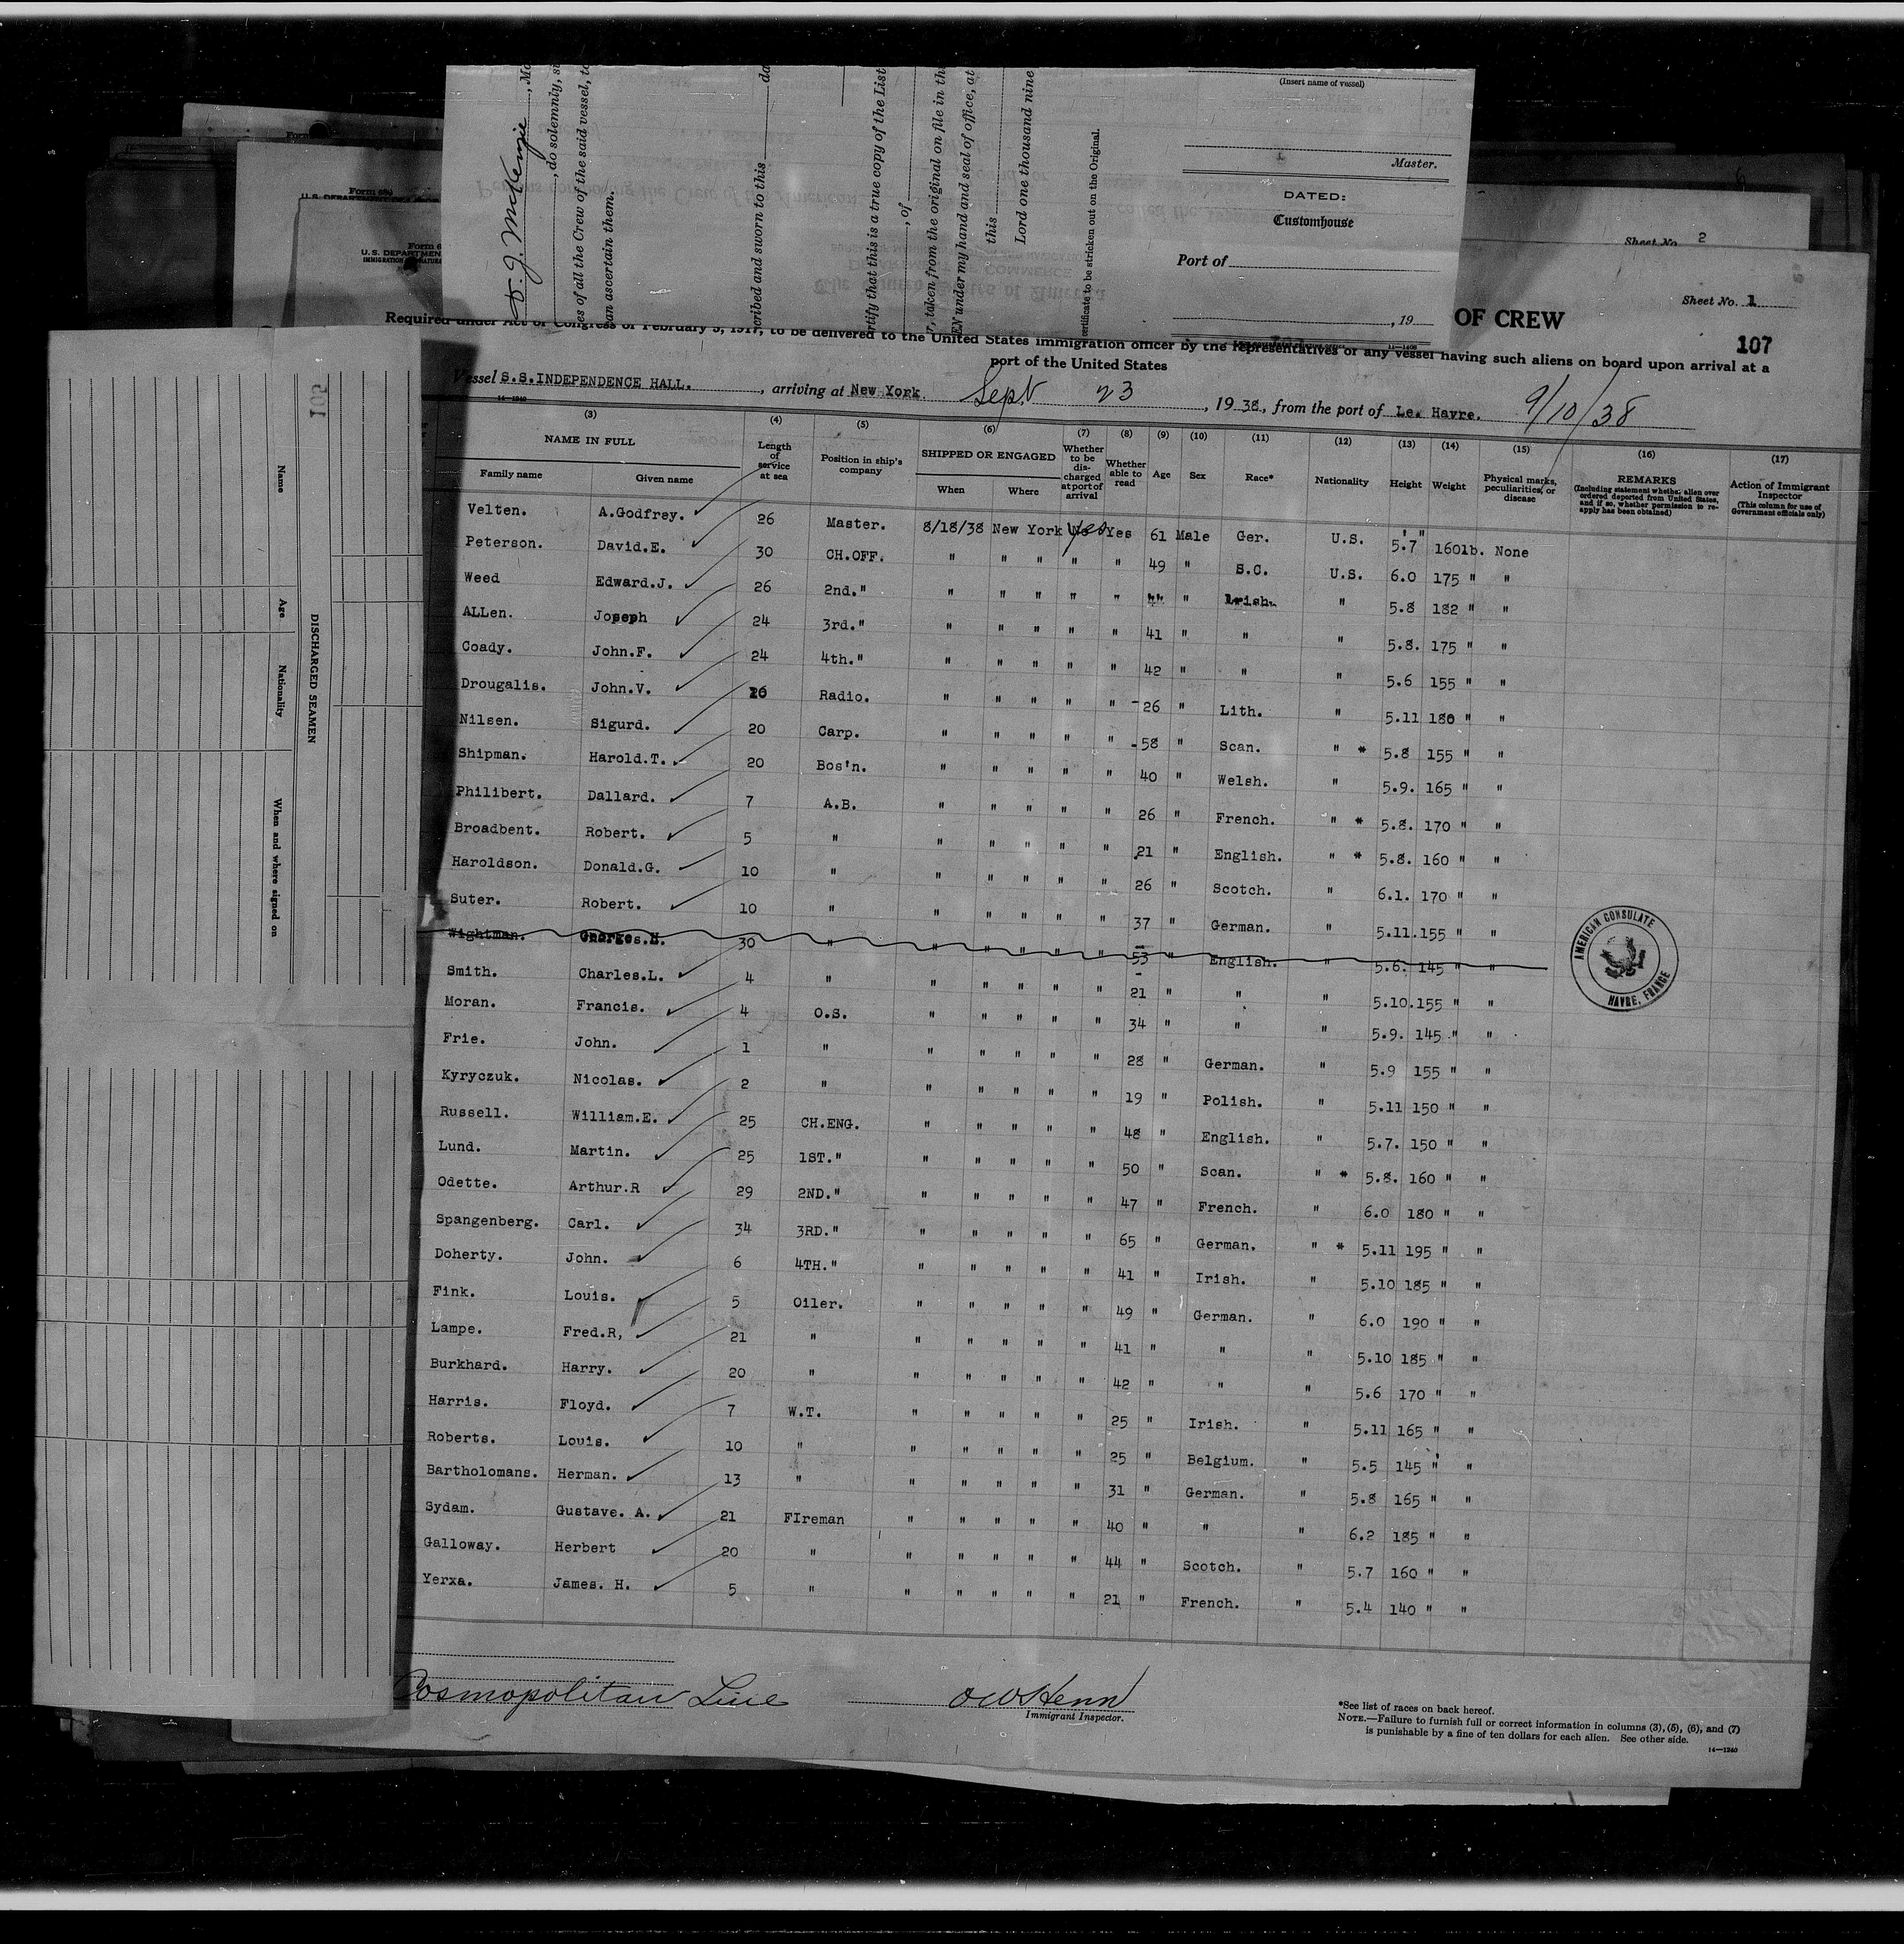 Form 680
U.S. DEPARTMENT OF
Form 6
U.S. DEPARTMEN
D. J. McKenzie, Ma
, do solemnly, s
es of all the Crew of the said vessel, to
an ascertain them.
cribed and sworn to this da
rtify that this is a true copy of the List
, of
r, taken from the original on file in th
EN under my hand and seal of office, at
this
Lord one thousand nine
ertificate to be stricken out on the Original.
(Insert name of vessel)
Master.
DATED:
Customhouse
Port of
, 19
11—1408
Sheet No. 2
Sheet No. 1
OF CREW
107
Required under Act of Congress of February 5, 1917, to be delivered to the United States immigration officer by the representatives of any vessel having such aliens on board upon arrival at a
port of the United States
Vessel S.S.INDEPENDENCE HALL. , arriving at New York. Sept 23 , 19 38, from the port of Le. Havre. 9/10/38
14—1240
(3) (4) (5) (6) (7) (8) (9) (10) (11) (12) (13) (14) (15) (16) (17)
NAME IN FULL Length of service at sea Position in ship's company SHIPPED OR ENGAGED Whether to be discharged at port of arrival Whether able to read Age Sex Race* Nationality Height Weight Physical marks, peculiarities, or disease REMARKS (Including statement whether alien ever ordered deported from United States, and if so, whether permission to reapply has been obtained) Action of Immigrant Inspector (This column for use of Government officials only)
Family name Given name When Where
Velten. A.Godfrey. 26 Master. 8/18/38 New York Yes Yes 61 Male Ger. U.S. 5'.7" 160lb. None
Peterson. David.E. 30 CH.OFF. " " " " " 49 " S.C. U.S. 6.0 175 " "
Weed Edward.J. 26 2nd." " " " " " 44 " Irish. " 5.8 182 " "
ALLen. Joseph 24 3rd." " " " " " 41 " " " 5.8. 175 " "
Coady. John.F. 24 4th." " " " " " 42 " " " 5.6 155 " "
Drougalis. John.V. Radio. " " " " " 26 " Lith. " 5.11 180 " "
Nilsen. Sigurd. 20 Carp. " " " " " 58 " Scan. " * 5.8 155 " "
Shipman. Harold.T. 20 Bos'n. " " " " " 40 " Welsh. " 5.9. 165 " "
Philibert. Dallard. 7 A.B. " " " " " 26 " French. " * 5.8. 170 " "
Broadbent. Robert. 5 " " " " " " 21 " English. " * 5.8. 160 " "
Haroldson. Donald.G. 10 " " " " " " 26 " Scotch. " 6.1. 170 " "
Suter. Robert. 10 " " " " " " 37 " German. " 5.11.155 " "
Wightman. Georges.H. 30 " " " " " " 53 " English. " 5.6. 145 " "
Smith. Charles.L. 4 " " " " " " 21 " " " 5.10.155 " "
Moran. Francis. 4 O.S. " " " " " 34 " " " 5.9. 145 " "
Frie. John. 1 " " " " " " 28 " German. " 5.9 155 " "
Kyryczuk. Nicolas. 2 " " " " " " 19 " Polish. " 5.11 150 " "
Russell. William.E. 25 CH.ENG. " " " " " 48 " English. " 5.7. 150 " "
Lund. Martin. 25 1ST." " " " " " 50 " Scan. " * 5.8. 160 " "
Odette. Arthur.R 29 2ND." " " " " " 47 " French. " 6.0 180 " "
Spangenberg. Carl. 34 3RD." " " " " " 65 " German. " * 5.11 195 " "
Doherty. John. 6 4TH." " " " " " 41 " Irish. " 5.10 185 " "
Fink. Louis. 5 Oiler. " " " " " 49 " German. " 6.0 190 " "
Lampe. Fred.R, 21 " " " " " " 41 " " " 5.10 185 " "
Burkhard. Harry. 20 " " " " " " 42 " " " 5.6 170 " "
Harris. Floyd. 7 W.T. " " " " " 25 " Irish. " 5.11 165 " "
Roberts. Louis. 10 " " " " " " 25 " Belgium. " 5.5 145 " "
Bartholomans. Herman. 13 " " " " " " 31 " German. " 5.8 165 " "
Sydam. Gustave. A. 21 FIreman " " " " " 40 " " " 6.2 185 " "
Galloway. Herbert 20 " " " " " " 44 " Scotch. " 5.7 160 " "
Yerxa. James. H. 5 " " " " " " 21 " French. " 5.4 140 " "
AMERICAN CONSULATE
HAVRE, FRANCE
DISCHARGED SEAMEN
Name Age Nationality When and where signed on
Cosmopolitan Line
O W Henn
Immigrant Inspector.
*See list of races on back hereof.
NOTE.—Failure to furnish full or correct information in columns (3), (5), (6), and (7)
is punishable by a fine of ten dollars for each alien. See other side.
14—1240